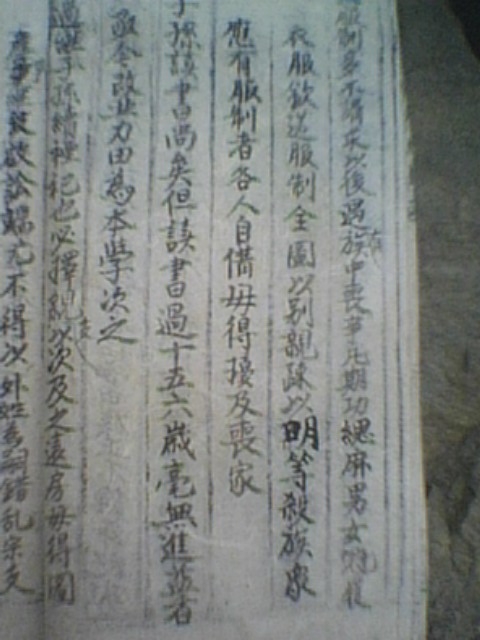 服制多不講求以後遇族中有喪事凡期功緦麻男女
衣服欽送服制全圖以別親疎以明等殺族衆
應有服制者各人自備毋得擾及喪家
子孫讀書尚矣但讀書過十五六歲毫無進益者
亟令改業力田為本學次之
子孫續禋祀也必擇親以次及之遠房毋得圖
不得以外姓為嗣錯乱宗支